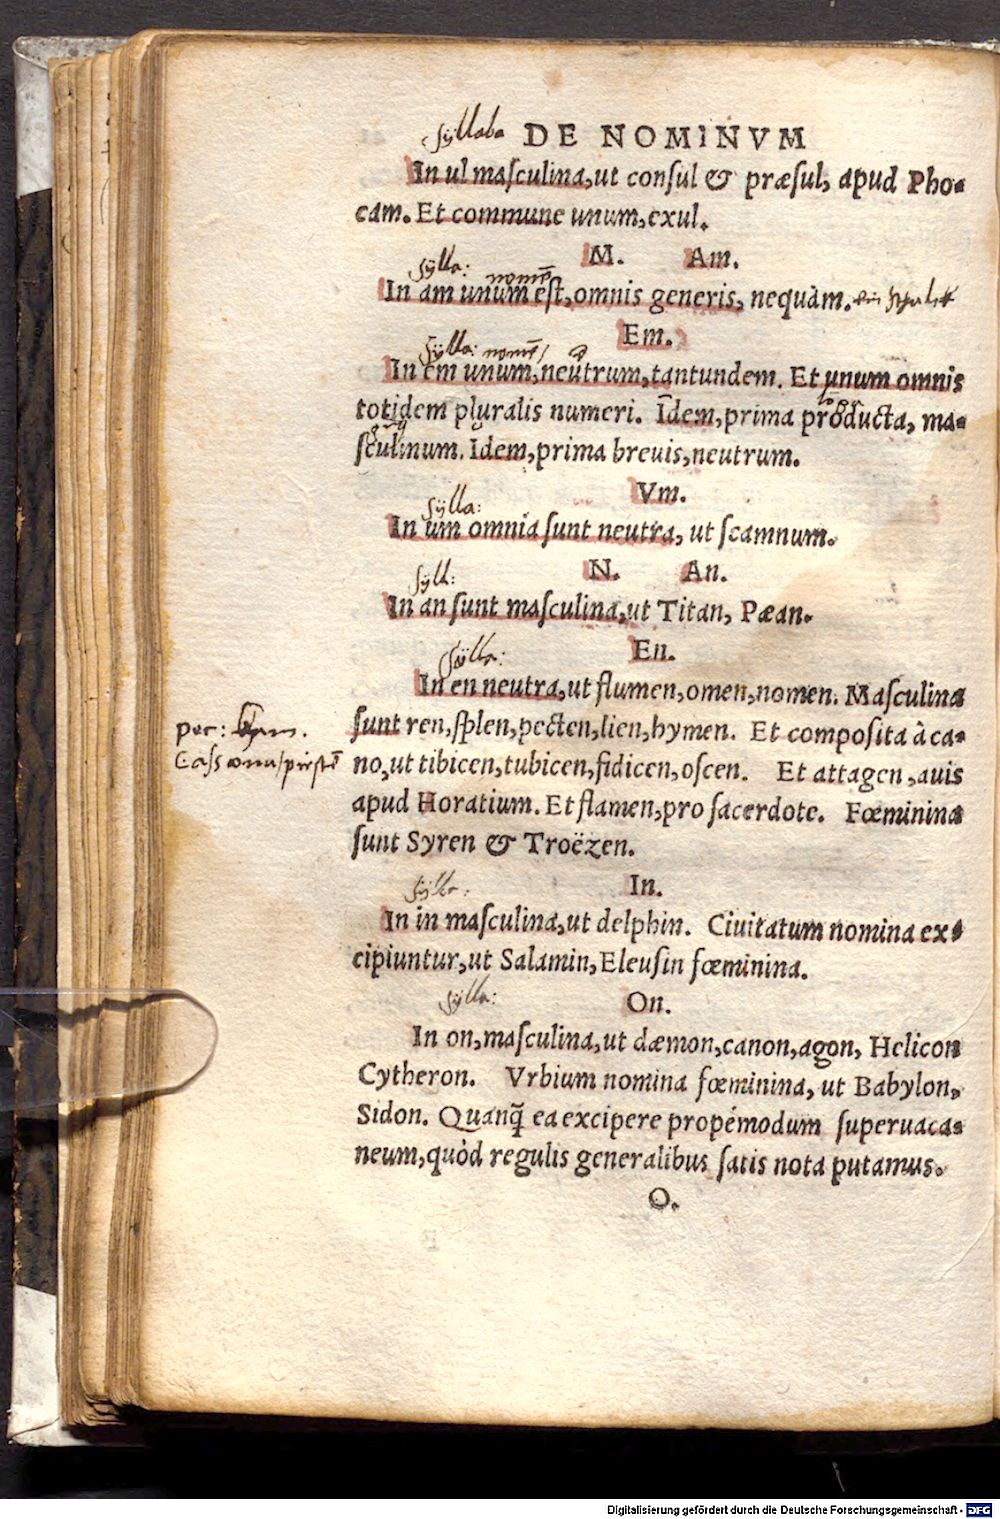 Sylla͏ba DE NOMINVM
In ul masculina, ut consul & præsul, apud Pho-
cam. Et commune unum, exul.
M. Am.
Sylla: nomē
In am unum est, omnis generis, nequàm. ein Schalck
Em.
Sylla: nomē
In em unum, neutrum, tantundem. Et unum omnis
totidem pluralis numeri. Idem, prima producta, ma-
sculinum. Idem, prima breuis, neutrum.
Vm.
Sylla:
In um omnia sunt neutra, ut scamnum.
N. An.
Syll:
In an sunt masculina, ut Titan, Pæan.
En.
Sylla:
In en neutra, ut flumen, omen, nomen. Masculina
sunt ren, splen, pecten, lien, hymen. Et composita à ca-
no, ut tibicen, tubicen, fidicen, oscen. Et attagen, auis
apud Horatium. Et flamen, pro sacerdote. Fœminina
sunt Syren & Troëzen.
pec:
In.
Sylla:
In in masculina, ut delphin. Ciuitatum nomina ex-
cipiuntur, ut Salamin, Eleusin fœminina.
On.
Sylla:
In on, masculina, ut dæmon, canon, agon, Helicon
Cytheron. Vrbium nomina fœminina, ut Babylon,
Sidon. Quanq̃ ea excipere propémodum superuaca-
neum, quòd regulis generalibus satis nota putamus.
O.
Digitalisierung gefördert durch die Deutsche Forschungsgemeinschaft - DFG